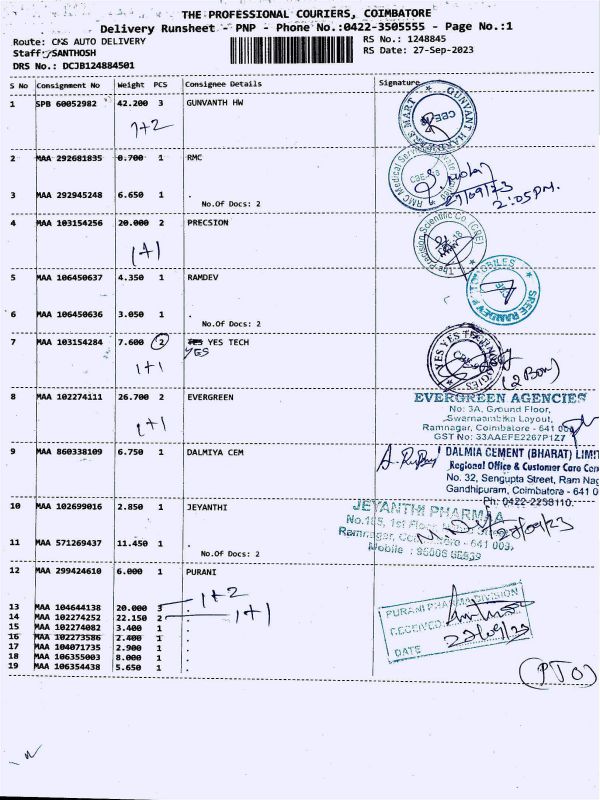 THE PROFESSIONAL COURIERS, COIMBATORE
Delivery Runsheet - PNP - Phone No.:0422-3505555 - Page No.:1
Route: CKS AUTO DELIVERY RS No.: 1248845
Staff:/SANTHOSH RS Date: 27-Sep-2023
DRS No.: DCJB124884501
S No Consignment No Weight PCS Consignee Details Signature
1 SPB 60052982 42.200 3 GUNVANTH HW
1+2
GUNVANT HARDWARE MART
CBE
2 MAA 292681835 0.700 1 RMC
RMC Medical
CBE-18
27/09/23
2:05pm.
3 MAA 292945248 6.650 1 .
No.Of Docs: 2
4 MAA 103154256 20.000 2 PRECSION
1+1
The Precision Scientific Co (CBE)
5 MAA 106450637 4.350 1 RAMDEV
SREE RAMDEV AUTOMOBILES
6 MAA 106450636 3.050 1 .
No.Of Docs: 2
7 MAA 103154284 7.600 2 YES YES TECH
YES
1+1
YES YES TECHNOLOGIES
(2 Box)
8 MAA 102274111 26.700 2 EVERGREEN
1+1
EVERGREEN AGENCIES
No: 3A, Ground Floor,
Swarnaambika Layout,
Ramnagar, Coimbatore - 641 009
GST No: 33AAEFE2267P1Z7
9 MAA 860338109 6.750 1 DALMIYA CEM
DALMIA CEMENT (BHARAT) LIMIT
Regional Office & Customer Care Cen
No. 32, Sengupta Street, Ram Nag
Gandhipuram, Coimbatore - 641 0
Ph: 0422-2238110.
10 MAA 102699016 2.850 1 JEYANTHI
JEYANTHI PHARMA
No.185, 1st Floor,
Ramnagar, Coimbatore - 641 009.
Mobile :
27/09/23
11 MAA 571269437 11.450 1 .
No.Of Docs: 2
12 MAA 299424610 6.000 1 PURANI
13 MAA 104644138 20.000 3 . 1+2
14 MAA 102274252 22.150 2 . 1+1
15 MAA 102274082 3.400 1 .
16 MAA 102273586 2.400 1 .
17 MAA 104071735 2.900 1 .
18 MAA 106355003 8.000 1 .
19 MAA 106354438 5.650 1 .
PURANI PHARMA DIVISION
RECEIVED
DATE 27/09/23
(PTO)